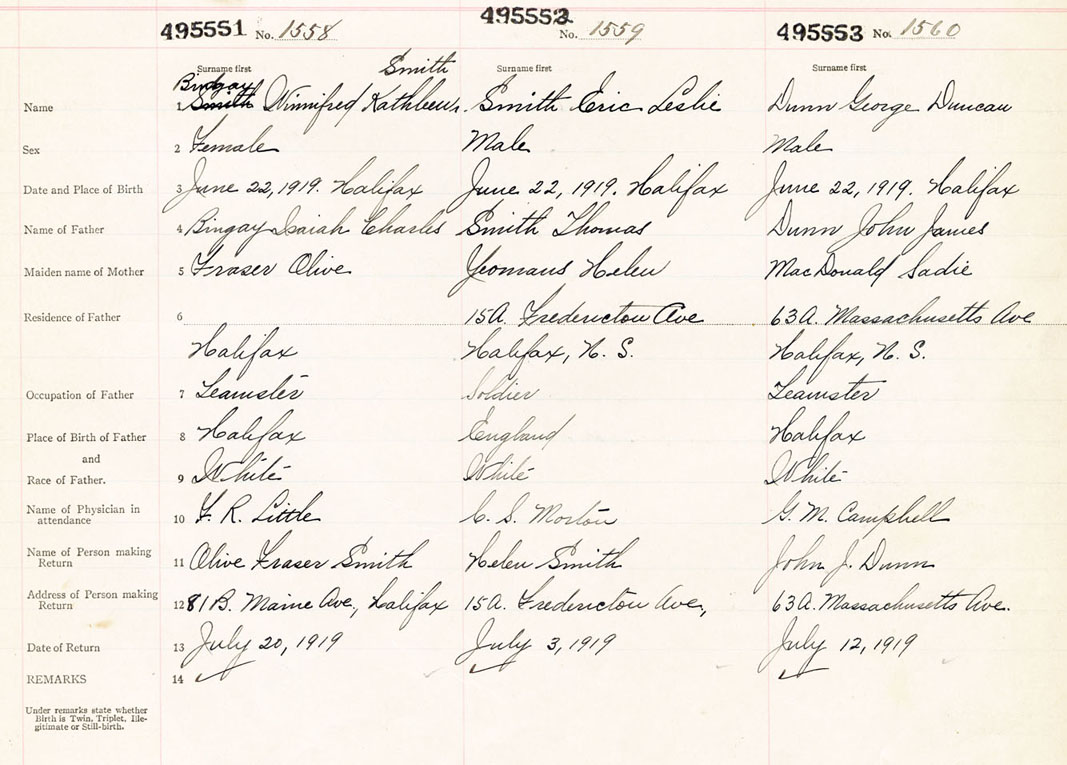 495551 No. 1558 495552 No. 1559 495553 No. 1560
Surname first Smith Surname first Surname first
Bingay
Name 1 Smith Winnifred Kathleen Smith Eric Leslie Dunn George Duncan
Sex 2 Female Male Male
Date and Place of Birth 3 June 22, 1919. Halifax June 22, 1919. Halifax June 22, 1919. Halifax
Name of Father 4 Bingay Isaiah Charles Smith Thomas Dunn John James
Maiden name of Mother 5 Fraser Olive Yeomans Helen MacDonald Sadie
Residence of Father 6 15A. Fredericton Ave 63A. Massachusetts Ave
Halifax Halifax, N. S. Halifax, N. S.
Occupation of Father 7 Teamster Soldier Teamster
Place of Birth of Father 8 Halifax England Halifax
and
Race of Father. 9 White White White
Name of Physician in
attendance 10 F. R. Little C. S. Morton G. M. Campbell
Name of Person making
Return 11 Olive Fraser Smith Helen Smith John J. Dunn
Address of Person making
Return 12 81B. Maine Ave., Halifax 15A. Fredericton Ave., 63A. Massachusetts Ave.
Date of Return 13 July 20, 1919 July 3, 1919 July 12, 1919
REMARKS 14
Under remarks state whether
Birth is Twin, Triplet, Ille-
gitimate or Still-birth.